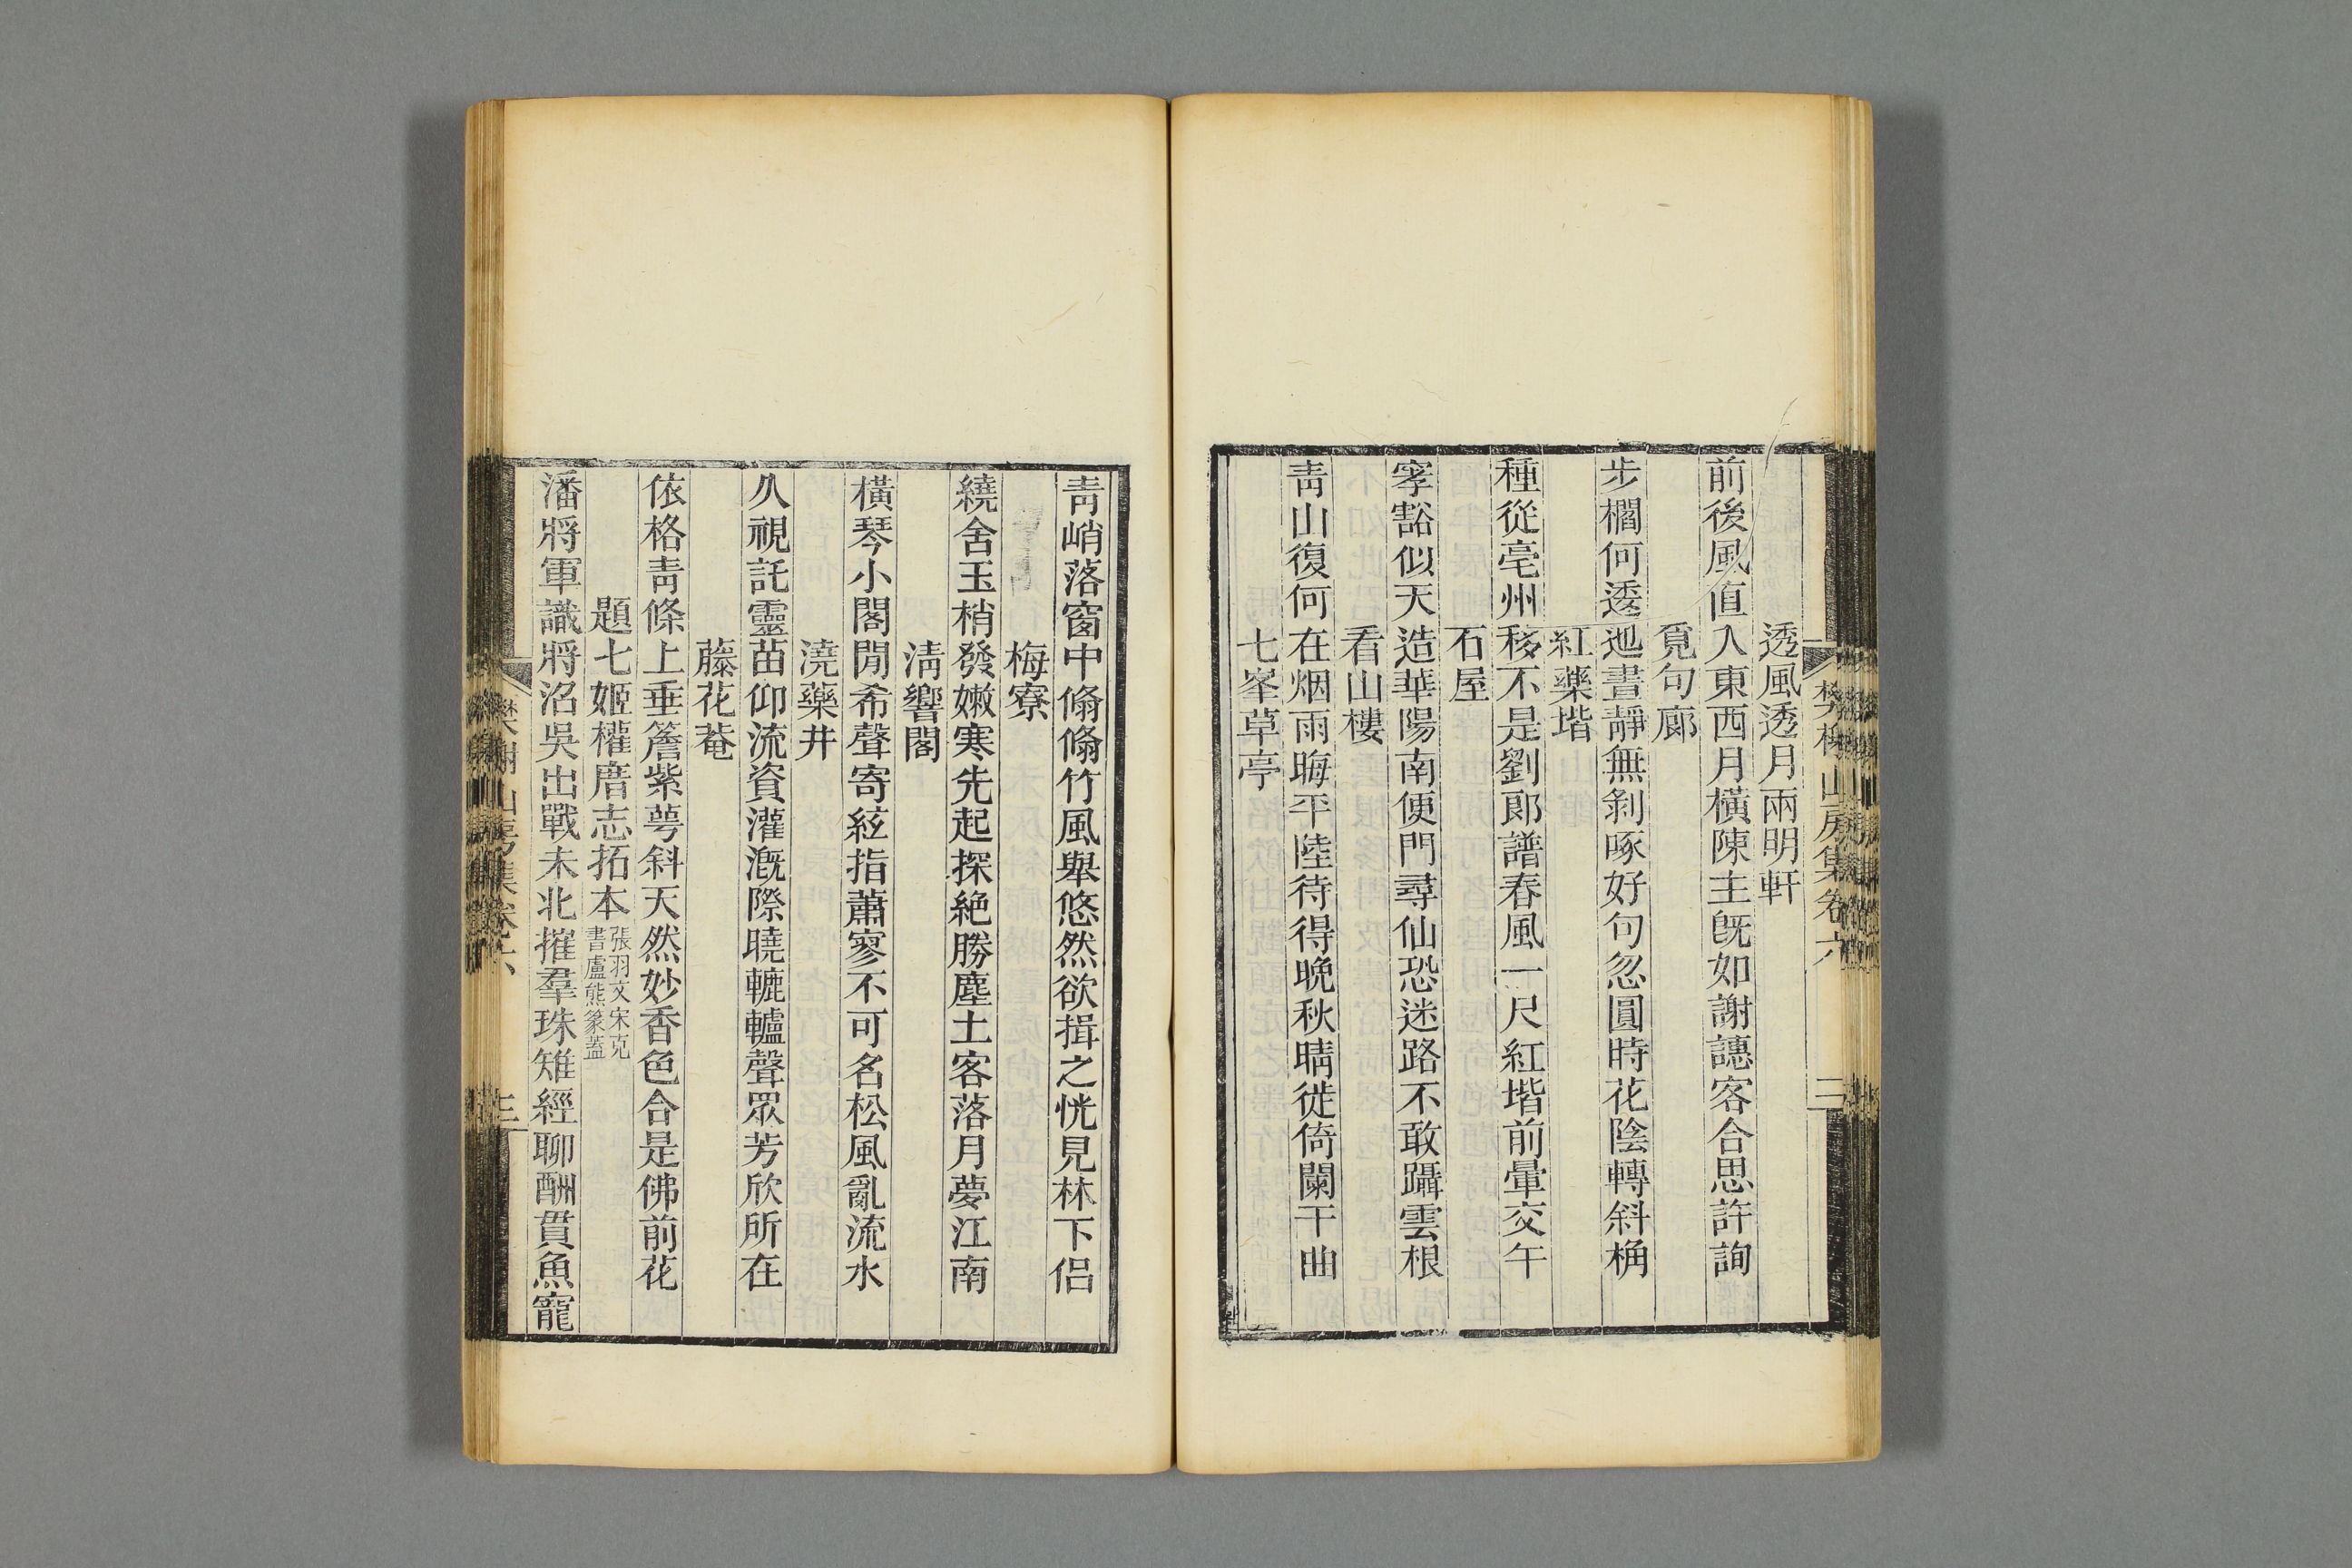 樊榭山房集卷六
二
透風透月兩明軒
前後風直入東西月橫陳主旣如謝譓客合思許詢
覓句廊
步櫩何逶迤晝靜無剝啄好句忽圓時花陰轉斜桷
紅藥堦
種從亳州移不是劉郞譜春風一尺紅堦前暈交午
石屋
豁似天造華陽南便門尋仙恐迷路不敢躡雲根
看山樓
靑山復何在烟雨晦平陸待得晚秋晴徙倚闌干曲
七峯草亭
靑峭落窗中翛翛竹風舉悠然欲揖之恍見林下侶
梅寮
繞舍玉梢發嫩寒先起探絶勝塵土客落月夢江南
淸響閣
橫琴小閣閒希聲寄絃指蕭寥不可名松風亂流水
澆藥井
久視託靈苗仰流資灌漑際曉轆轤聲眾芳欣所在
藤花菴
依格靑條上垂簷紫萼斜天然妙香色合是佛前花
題七姬權厝志拓本張羽文宋克書盧熊篆蓋
潘將軍識將沼吳出戰未北摧羣珠雉經聊酬貫魚寵
樊榭山房集卷六
三